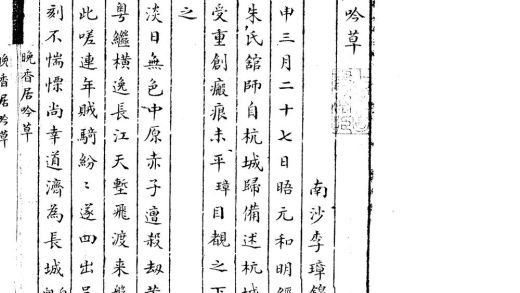 吟草
南沙李璋錦
申三月二十七日晤元和明經
朱氏舘師自杭城歸備述杭城
受重創瘢痕未平璋目覩之下
之
淡日無色中原赤子遭殺劫
粵繼橫逸長江天塹飛渡来
此嗟連年賊騎紛〻遂四出
刻不惴慄尚幸道濟為長城
晚香居吟草
晚香居吟草